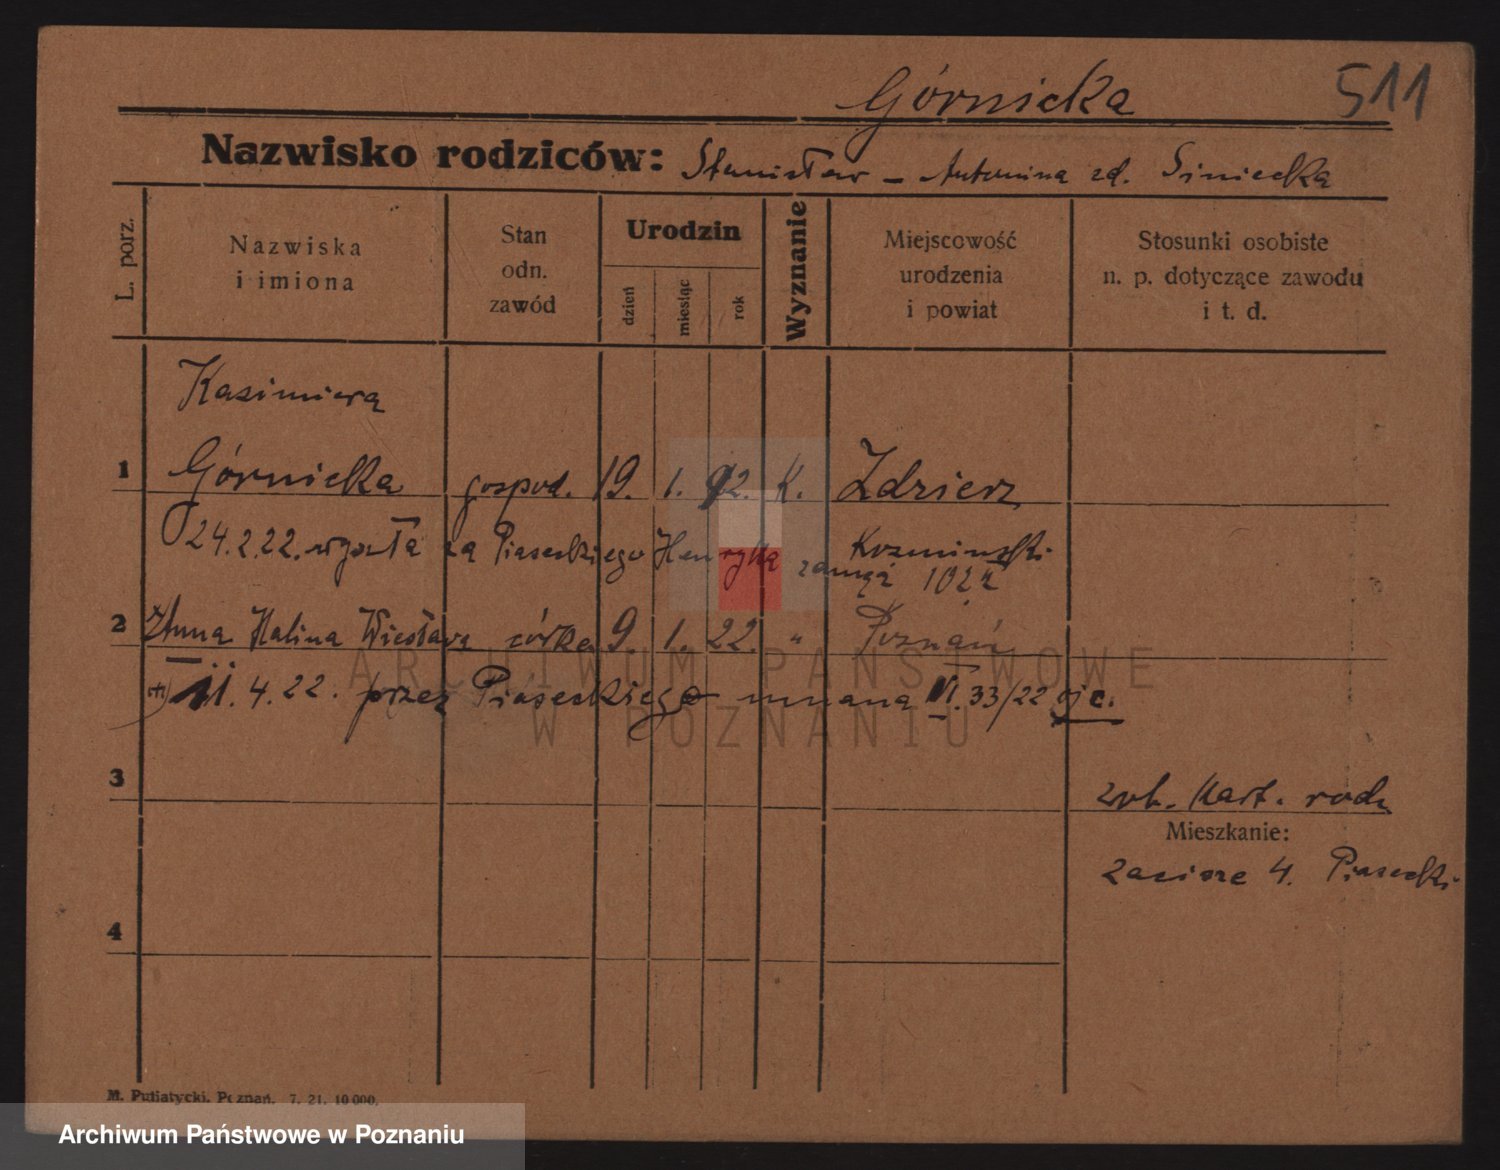 Górnicka 511
Nazwisko rodziców: Stanisław – Antonina zd. Siniecka
L. porz.
Nazwiska
i imiona
Stan
odn.
zawód
Urodzin
dzień
miesiąc
rok
Wyznanie
Miejscowość
urodzenia
i powiat
Stosunki osobiste
n. p. dotyczące zawodu
i t. d.
Kazimiera
1 Górnicka gospod. 19. 1. 92. K. Zdzierz
24.2.22. wyszła za Piaseckiego Henryka zamąż
Kozminski
1022
2 Anna Halina Wiesława córka 9. 1. 22. " Poznań
II. 4. 22. przez Piaseckiego uznana VI. 33/22
3
zob. Kart. rodz
Mieszkanie:
Zacisze 4. Piasecki
4
M. Putiatycki. Poznań. 7. 21. 10 000.
ARCHIWUM PAŃSTWOWE
W POZNANIU
Archiwum Państwowe w Poznaniu